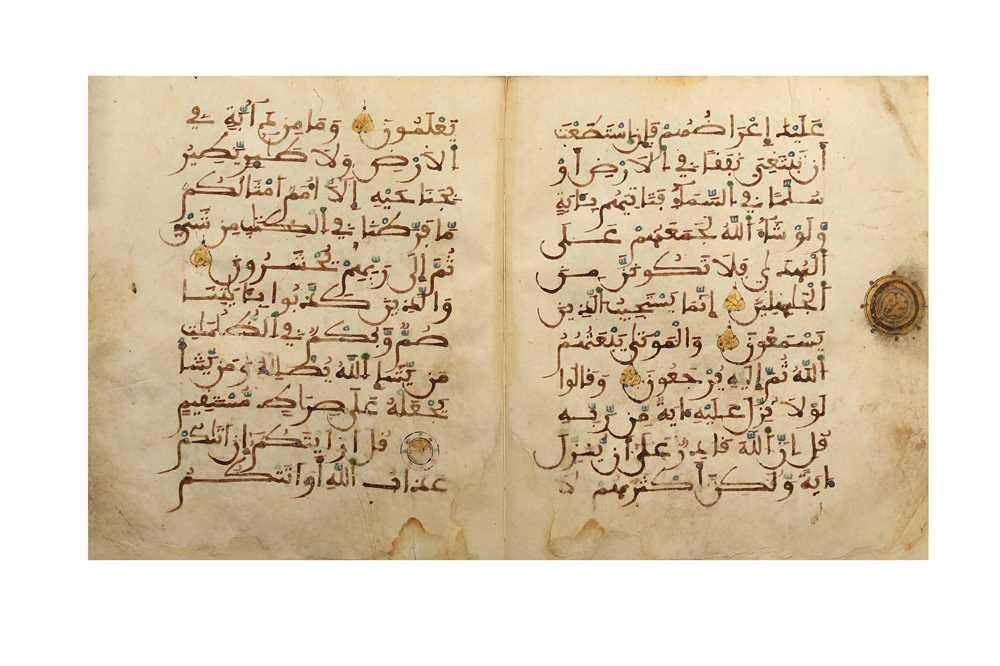 عَلَيْكَ إِعْرَاضُهُمْ فَإِنِ اسْتَطَعْتَ
أَن تَبْتَغِيَ نَفَقًا فِي الْأَرْضِ أَوْ
سُلَّمًا فِي السَّمَاءِ فَتَأْتِيَهُم بِـَٔايَةٍ
وَلَوْ شَاءَ اللَّهُ لَجَمَعَهُمْ عَلَى
الْهُدَىٰ فَلَا تَكُونَنَّ مِنَ
الْجَٰهِلِينَ إِنَّمَا يَسْتَجِيبُ الَّذِينَ
يَسْمَعُونَ وَالْمَوْتَىٰ يَبْعَثُهُمُ
اللَّهُ ثُمَّ إِلَيْهِ يُرْجَعُونَ وَقَالُوا
لَوْلَا نُزِّلَ عَلَيْهِ ءَايَةٌ مِّن رَّبِّهِ
قُلْ إِنَّ اللَّهَ قَادِرٌ عَلَىٰ أَن يُنَزِّلَ
ءَايَةً وَلَٰكِنَّ أَكْثَرَهُمْ لَا
يَعْلَمُونَ وَمَا مِن دَابَّةٍ فِي
الْأَرْضِ وَلَا طَٰٓئِرٍ يَطِيرُ
بِجَنَاحَيْهِ إِلَّا أُمَمٌ أَمْثَالُكُم
مَّا فَرَّطْنَا فِي الْكِتَٰبِ مِن شَيْءٍ
ثُمَّ إِلَىٰ رَبِّهِمْ يُحْشَرُونَ
وَالَّذِينَ كَذَّبُوا بِـَٔايَٰتِنَا
صُمٌّ وَبُكْمٌ فِي الظُّلُمَٰتِ
مَن يَشَإِ اللَّهُ يُضْلِلْهُ وَمَن يَشَأْ
يَجْعَلْهُ عَلَىٰ صِرَٰطٍ مُّسْتَقِيمٍ
قُلْ أَرَأَيْتَكُمْ إِنْ أَتَىٰكُمْ
عَذَابُ اللَّهِ أَوْ أَتَتْكُمُ